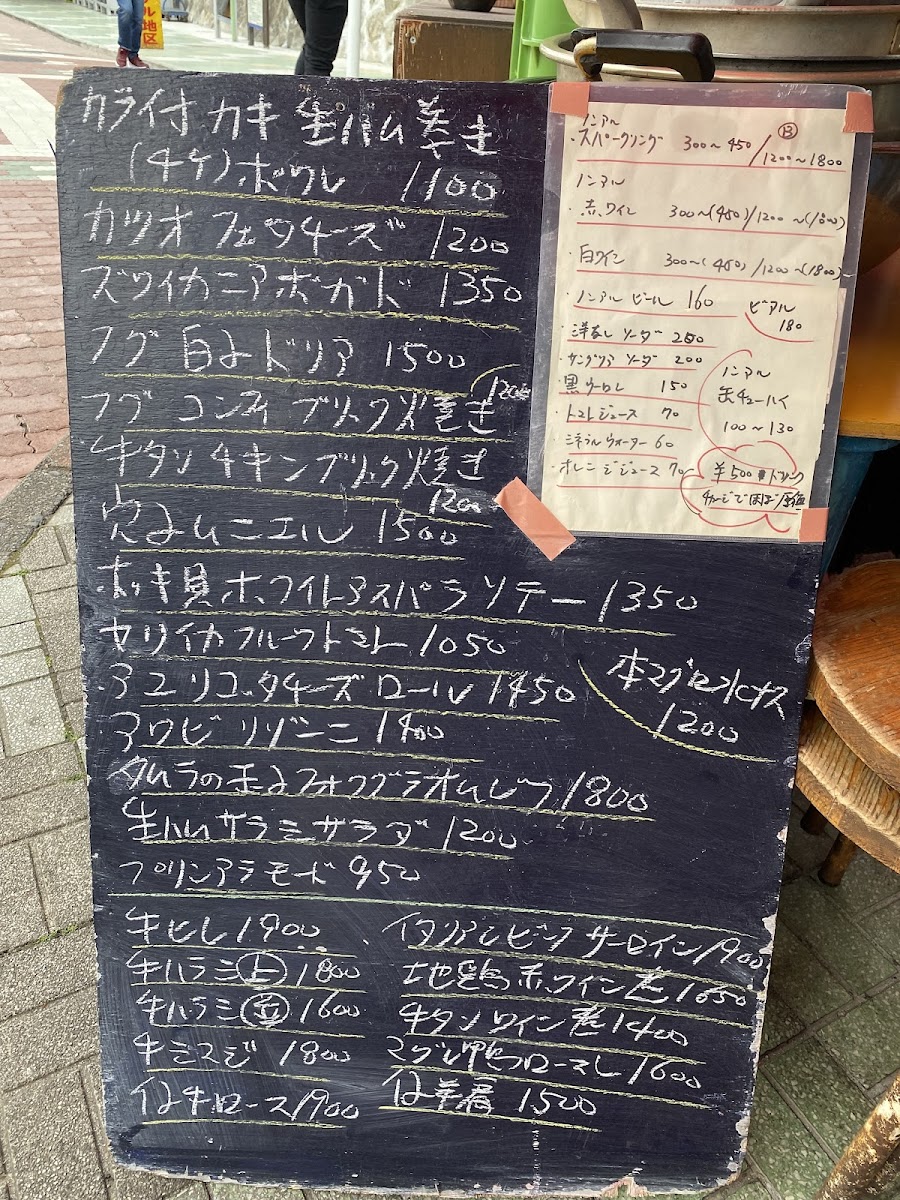 カライ付 カキ 生ハム巻き
(4ケ)ポワレ 1100
カツオ フェタチーズ 1200
ズワイカニアボガド 1350
フグ 白子ドリア 1500
フグ コンフィ ブリック焼き 1200
牛タン チキン ブリック焼き
1200
穴子ムニエル 1500
ホッキ貝ホワイトアスパラソテー 1350
ヤリイカフルーツトマト 1050
アユリコッタチーズロール 1450
本マグロ
1200
アワビ リゾーニ 1400
タムラの玉子フォアグラオムレツ 1800
生ハムサラミサラダ 1200
プリンアラモード 950
牛ヒレ 1900
牛ハラミ(上) 1800
牛ハラミ(並) 1600
牛ミスジ 1800
仔牛ロース 1900
イタリアンビーフ サーロイン 1900
地鶏赤ワイン煮 1650
牛タンワイン煮 1400
マグレ鴨ロースト 1600
仔羊肩 1500
ノンアル
・スパークリング 300〜450/1200〜1800
ノンアル
・赤ワイン 300〜(450)/1200〜(1800)
・白ワイン 300〜(450)/1200〜(1800)
・ノンアルビール 160
ビアル
180
・洋なしソーダ 250
・サングリアソーダ 200
・黒ウーロン 150
・トマトジュース 70
・ミネラルウォーター 60
・オレンジジュース 70
ノンアル
缶チューハイ
100〜130
¥500 ドリンク
チャージでほぼ原価